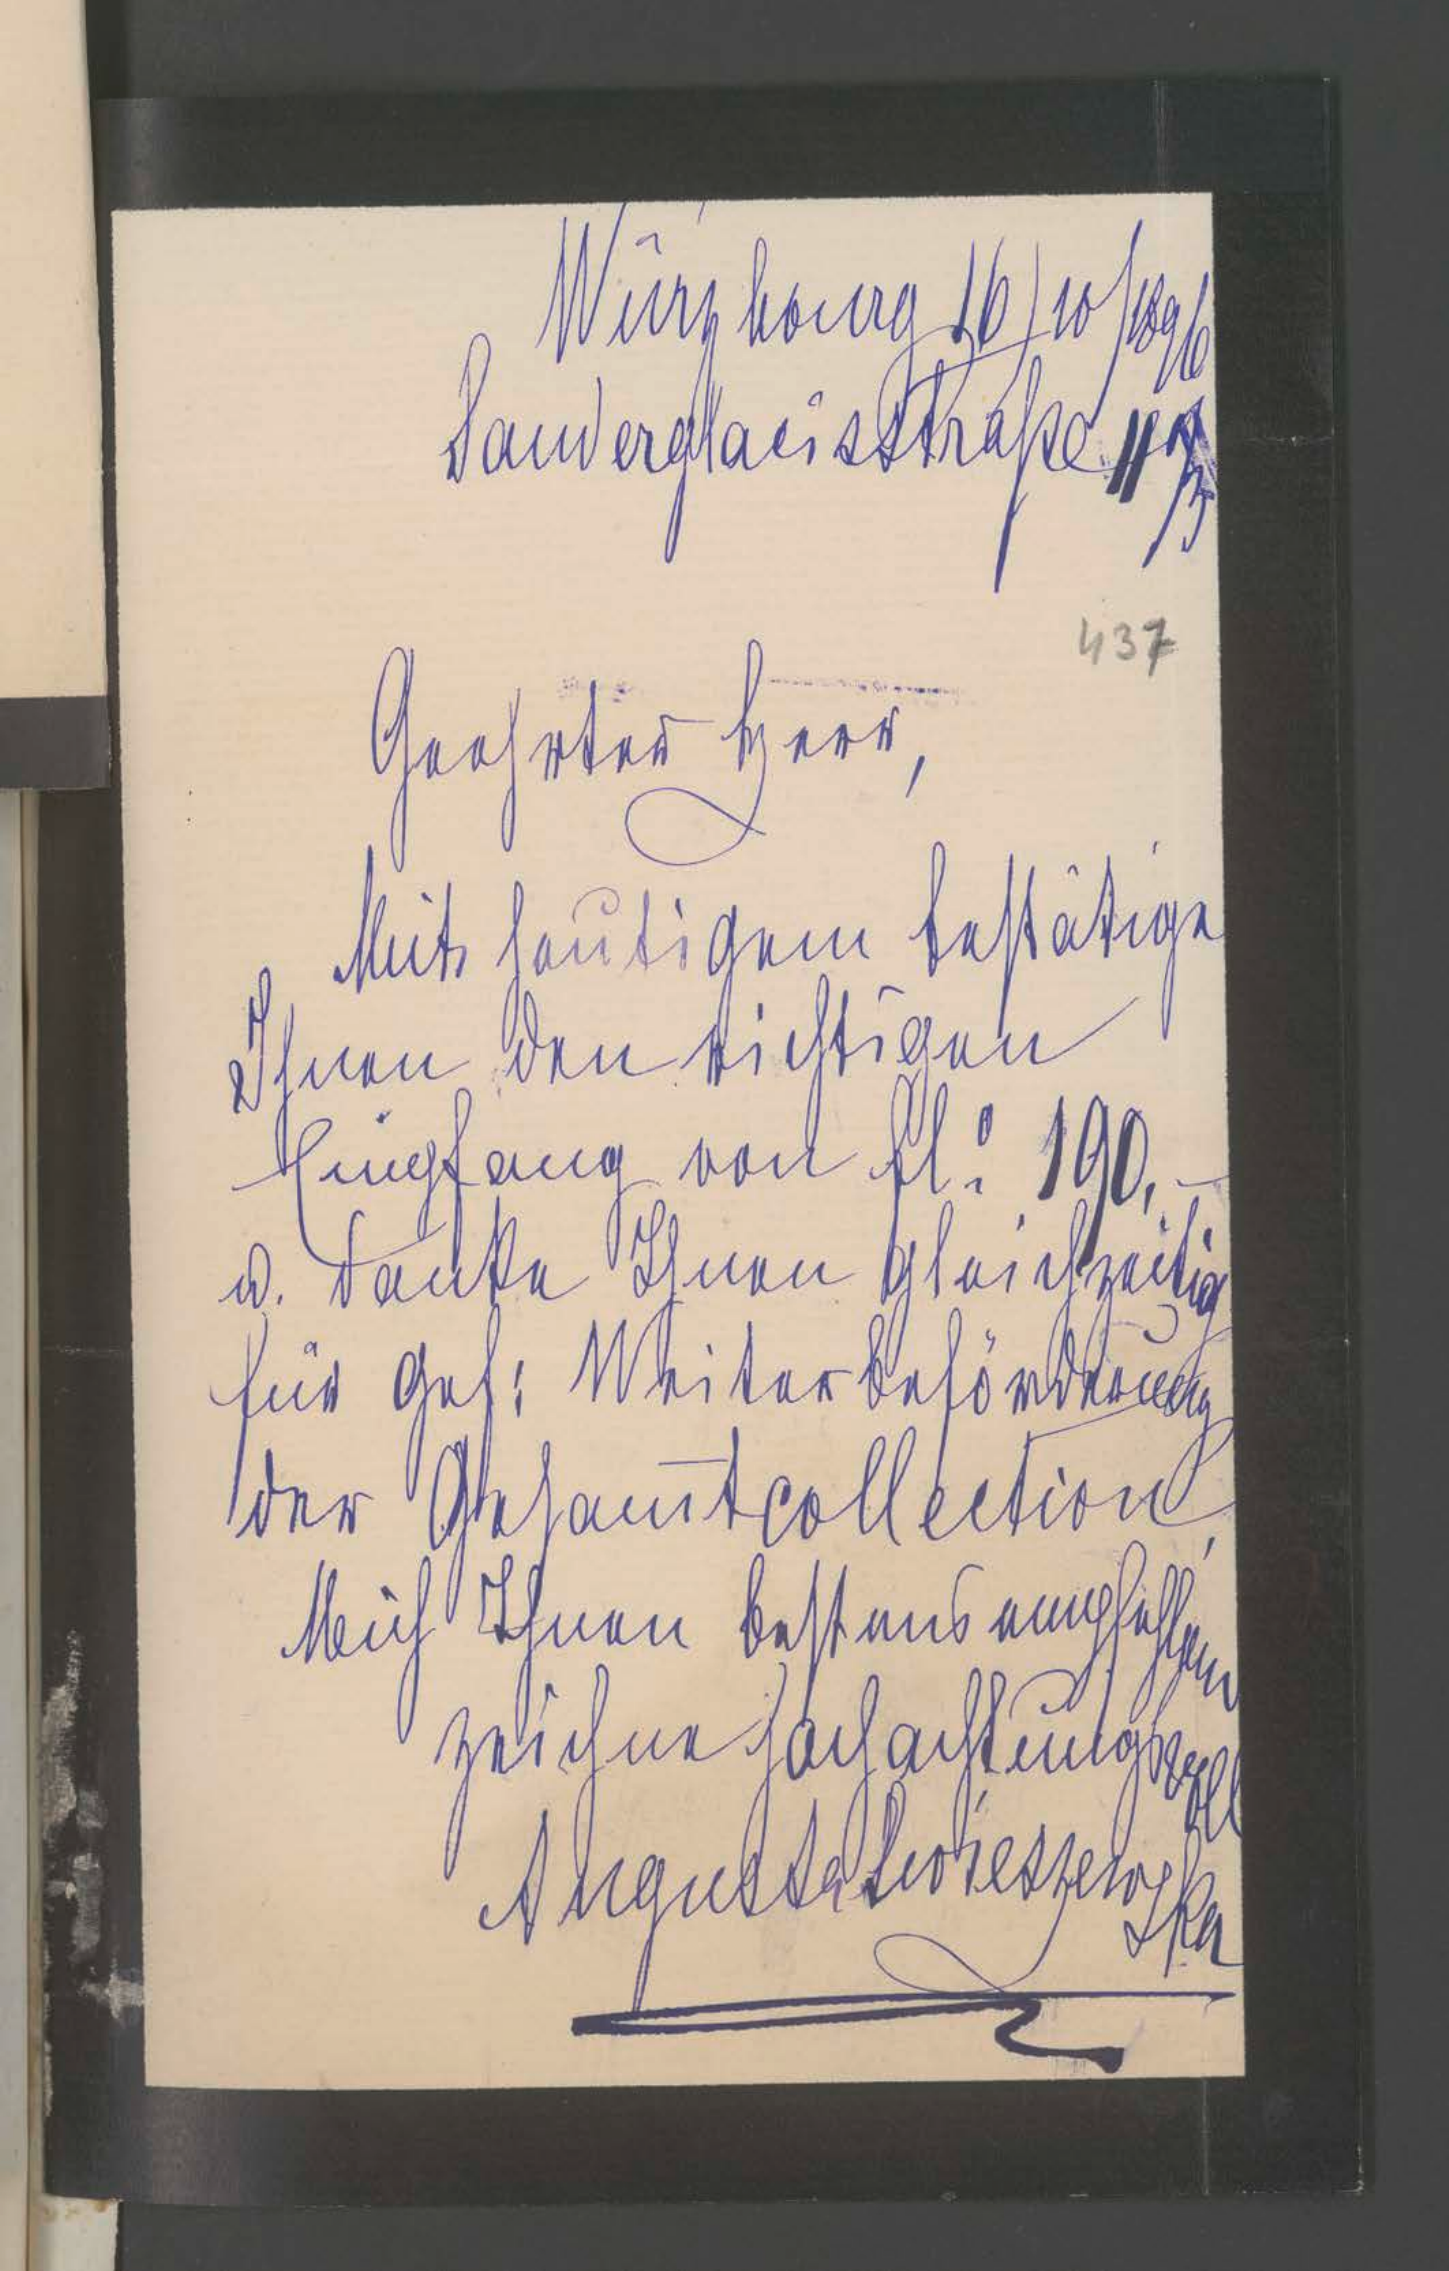 Würzbourg 16/10/1896
Sanderglacisstraße 11
437
Geehrter Herr,
Mit heutigem bestätige
Ihnen den richtigen
Empfang von fl: 190,–
u. danke Ihnen gleichzeitig
für gef: Weiterbeförderung
der Gesam̄tcollection.
Mich Ihnen bestens empfehlend
zeichne hochachtungsvoll
Augusta